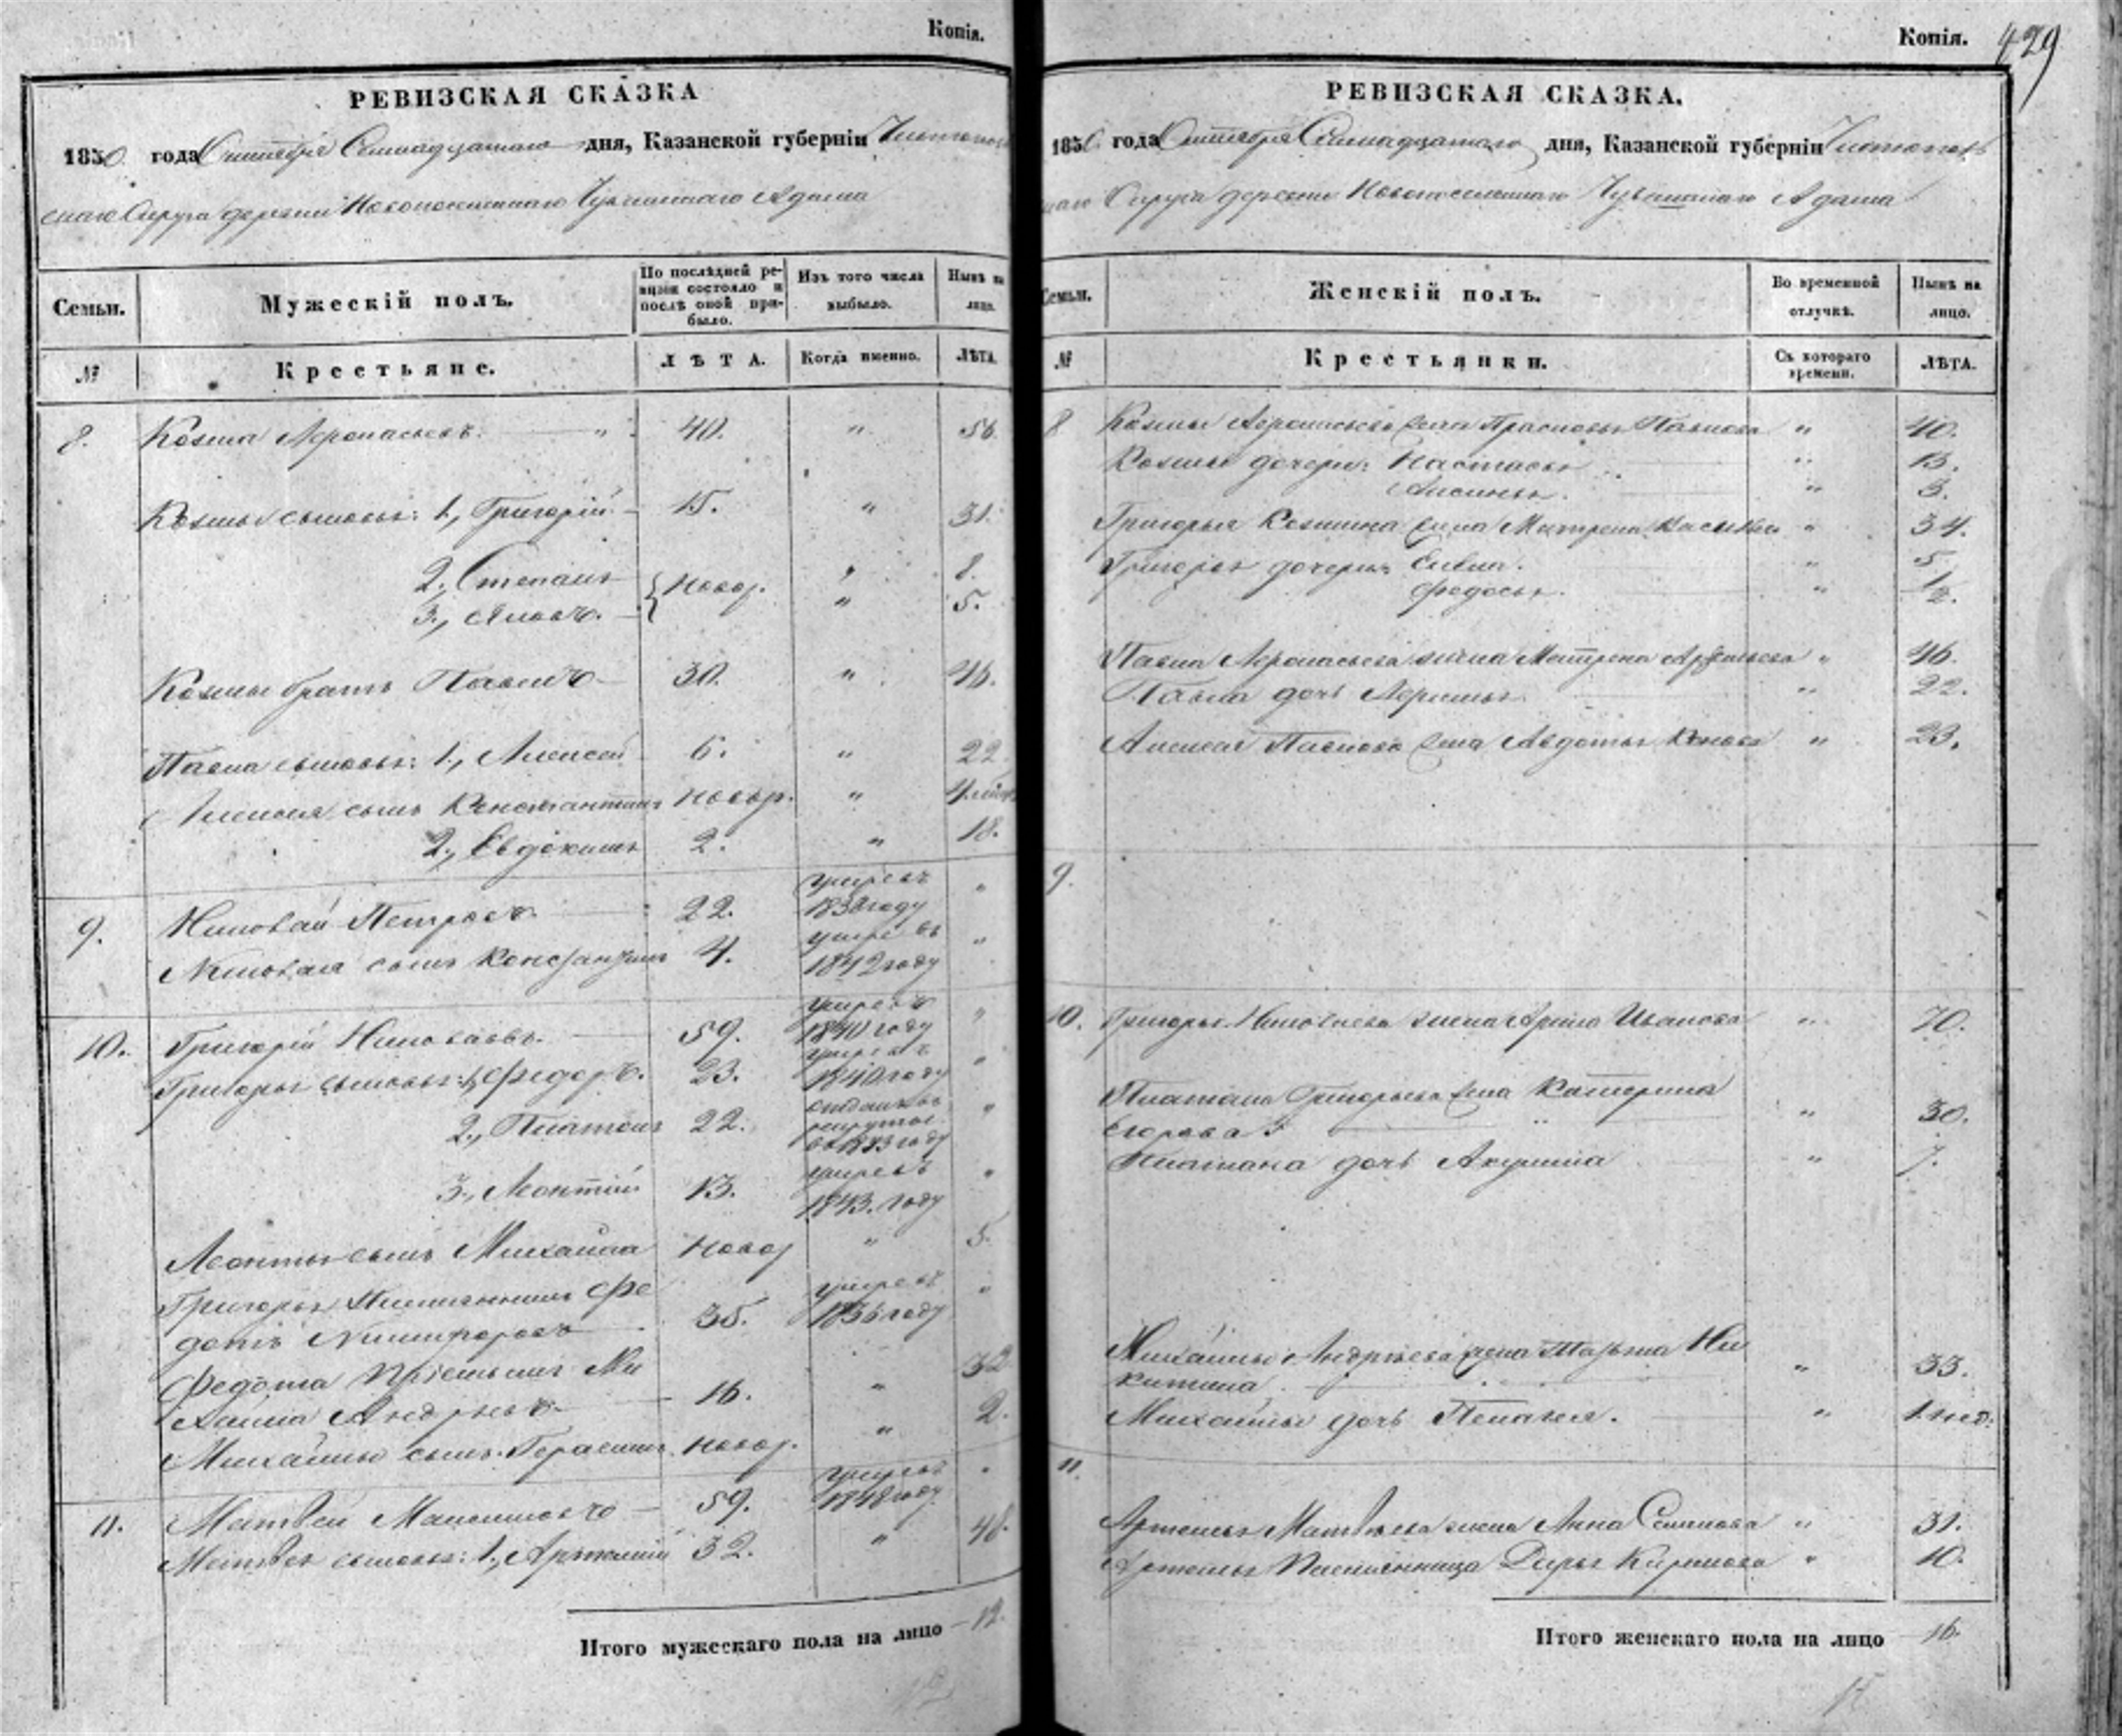 Копія.
РЕВИЗСКАЯ СКАЗКА
1850 года Октября Семнадцатаго дня, Казанской губерніи Чистополь
скаго Округа деревни Новопоселеннаго Чувашскаго Адама
Семьи.
Мужескій полъ.
По послѣдней ре-
визіи состояло и
послѣ оной при-
было.
Изъ того числа
выбыло.
Нынѣ на
лицо.
№
Крестьяне.
ЛѢТА.
Когда именно.
ЛѢТА.
8. Козма Афонасьевъ. — " 40. " 56.
Козмы сыновья: 1, Григорій 15. " 31.
2, Степанъ новор. " 8.
3, Яковъ. " 5.
Козмы братъ Павелъ 30. " 46.
Павла сыновья: 1, Алексей 6. " 22
Алексея сынъ Константинъ новор. "
2, Евдокимъ 2. " 18.
9. Николай Петровъ 22. умре въ "
году
Николая сынъ Константинъ 4. умре въ "
1842 году
10. Григорій Николаевъ. 59. умре въ "
1840 году
Григорья сыновья: 1, Федоръ. 23. умре въ "
1840 году
2, Платонъ 22. отданъ въ "
рекруты
году
3, Леонтій 13. умре въ "
1843. году
Леонтья сынъ Михайла новор " 5.
Григорья племянникъ Фе 35. умре въ "
дотъ Никифоровъ 1836 году
Федота пріемышъ Ми 32
хайла Андреевъ 16. "
Михайлы сынъ Герасимъ новор. " 2.
11. Матвей Максимовъ 59. умре въ
1848 году
Матвея сыновья: 1, Артемій 32. " 48.
Итого мужескаго пола на лицо 12.
12
Копія. 429
РЕВИЗСКАЯ СКАЗКА.
1850 года Октября Семнадцатаго дня, Казанской губерніи Чистополь
скаго Округа деревни Новопоселеннаго Чувашскаго Адама
Семьи.
Женскій полъ.
Во временной
отлучкѣ.
Нынѣ на
лицо.
№
Крестьянки.
Съ котораго
времени.
ЛѢТА.
8 Козмы Афонасьева жена Прасковья Павлова " 40.
Козмы дочери: Настасья " 13.
" 3.
Григорья Козмина жена Матрена Васильева " 34.
Григорья дочери " 5
Федосья. " 1/2.
Павла Афонасьева жена Матрена " 46.
Павла дочь " 22.
Алексея Павлова жена Авдотья " 23.
9.
10. Григорья Николаева жена Арина Иванова " 70.
Платона Григорьева жена Катерина
Егорова " 30.
Платона дочь Акулина " 7.
Михайлы Андреева жена Марья Ни
китина " 33.
Михайлы дочь Пелагея. " 1 нед.
11
Артемья Матвеева жена Анна Семенова " 31.
Артемья племянница Дарья Кирилова " 10.
Итого женскаго пола на лицо 16.